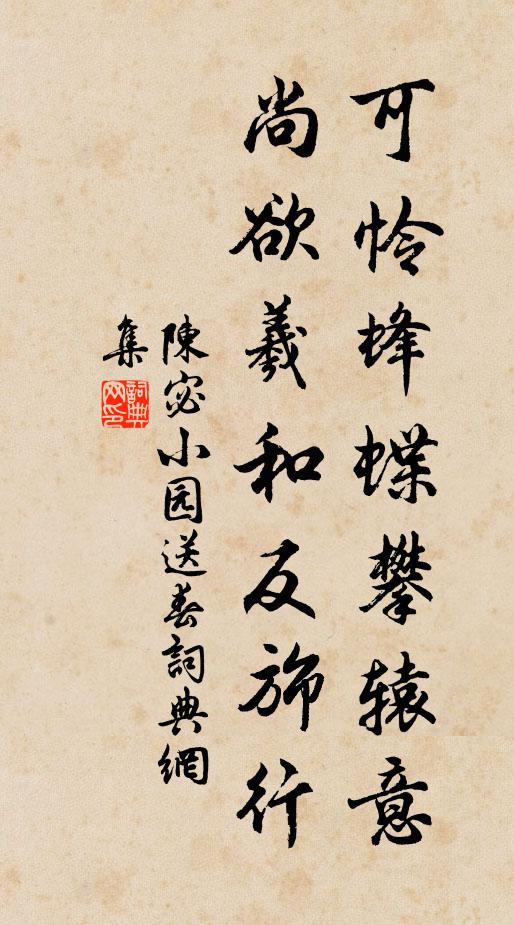 可怜蜂蝶攀辕意
尚欲羲和反斾行
陳宓小园送春詞典網
集
詞典网印